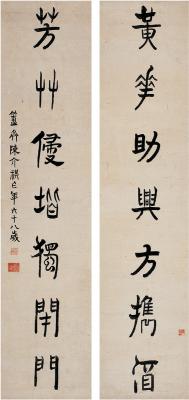 黃華助興方攜酒
芳艸侵堦獨閉門
簠齋陳介祺年六十八歲